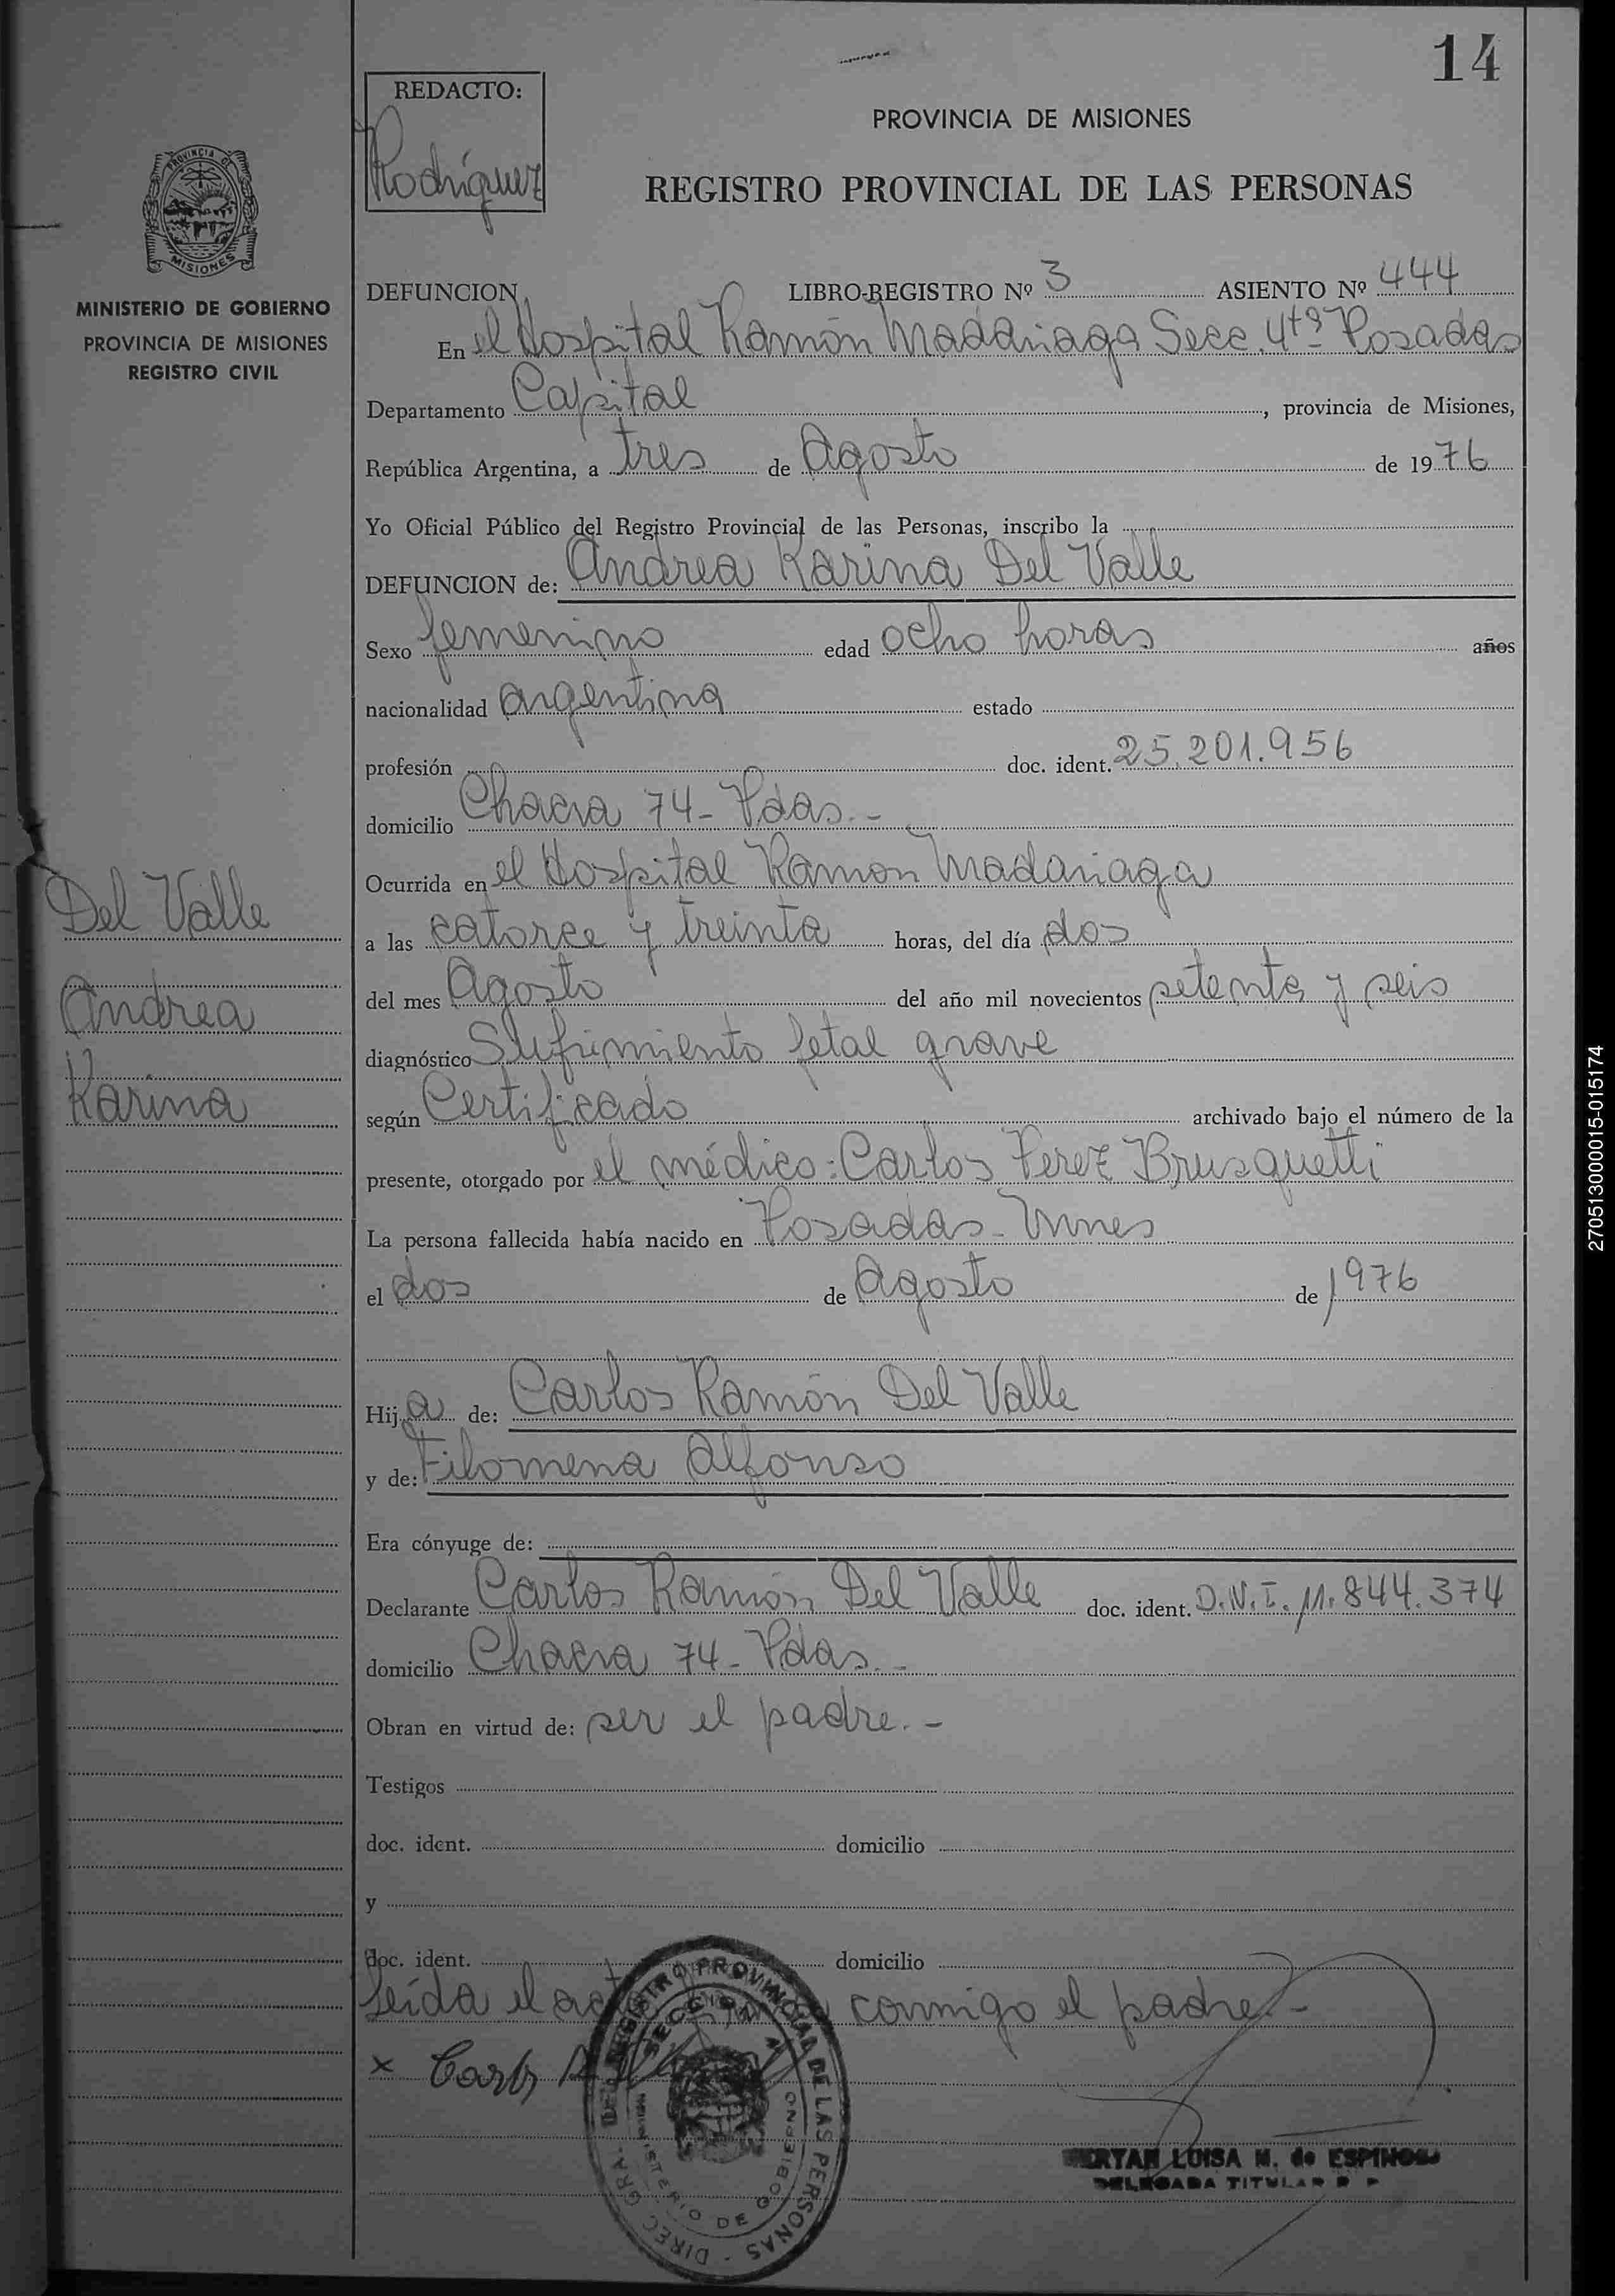 14
REDACTO:
Rodríguez
PROVINCIA DE MISIONES
REGISTRO PROVINCIAL DE LAS PERSONAS
PROVINCIA DE
MISIONES
MINISTERIO DE GOBIERNO
PROVINCIA DE MISIONES
REGISTRO CIVIL
DEFUNCION LIBRO-REGISTRO Nº 3 ASIENTO Nº 444
En el Hospital Ramón Madariaga Secc. 4ta Posadas
Departamento Capital, provincia de Misiones,
República Argentina, a tres de Agosto de 1976
Yo Oficial Público del Registro Provincial de las Personas, inscribo la
DEFUNCION de: Andrea Karina Del Valle
Sexo femenino edad ocho horas años
nacionalidad argentina estado
profesión doc. ident. 25.201.956
domicilio Chacra 74- Pdas.-
Ocurrida en el Hospital Ramon Madariaga
a las catorce y treinta horas, del día dos
del mes Agosto del año mil novecientos setenta y seis
diagnóstico Sufrimiento fetal grave
según Certificado archivado bajo el número de la
presente, otorgado por el médico: Carlos Perez Brusquetti
La persona fallecida había nacido en Posadas- Mnes
el dos de Agosto de 1976
Hija de: Carlos Ramón Del Valle
y de: Filomena Alfonso
Era cónyuge de:
Declarante Carlos Ramón Del Valle doc. ident. D.N.I. 11.844.374
domicilio Chacra 74- Pdas.-
Obran en virtud de: ser el padre.-
Testigos
doc. ident. domicilio
y
doc. ident. domicilio
Leída el conmigo el padre.-
x Carlos
Del Valle
Andrea
Karina
DIREC. GRAL. DEL REGISTRO PROVINCIAL DE LAS PERSONAS
SECCION 4
MINISTERIO DE GOBIERNO
LUISA M. de ESPINOSA
DELEGADA TITULAR
27051300015-015174